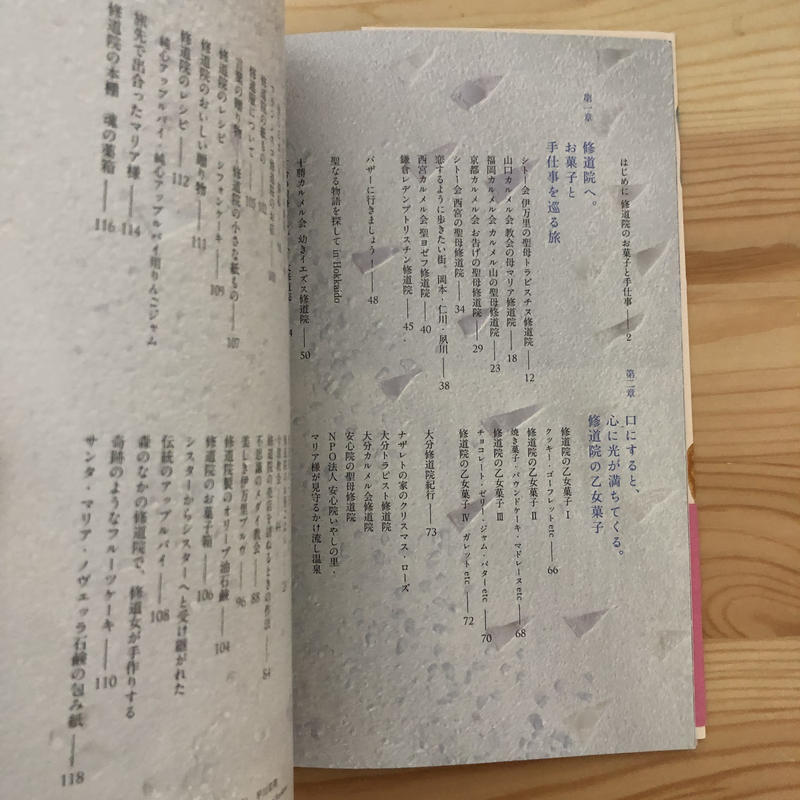 はじめに 修道院のお菓子と手仕事 —— 2
第一章
修道院へ。
お菓子と
手仕事を巡る旅
シトー会 伊万里の聖母トラピスチヌ修道院 —— 12
山口カルメル会 教会の母マリア修道院 —— 18
福岡カルメル会 カルメル山の聖母修道院 —— 23
京都カルメル会 お告げの聖母修道院 —— 29
シトー会 西宮の聖母修道院 —— 34
恋するように歩きたい街。岡本・仁川・夙川 —— 38
西宮カルメル会 聖ヨゼフ修道院 —— 40
鎌倉レデンプトリスチン修道院 —— 45
バザーに行きましょう! —— 48
聖なる物語を探して in Hokkaido
十勝カルメル会 幼きイエズス修道院 —— 50
第二章
口にすると、
心に光が満ちてくる。
修道院の乙女菓子
修道院の乙女菓子 Ⅰ
クッキー・ゴーフレット etc —— 66
修道院の乙女菓子 Ⅱ
焼き菓子・パウンドケーキ・マドレーヌ etc —— 68
修道院の乙女菓子 Ⅲ
チョコレート・ゼリー・ジャム・バター etc —— 70
修道院の乙女菓子 Ⅳ ガレット etc —— 72
大分修道院紀行 —— 73
ナザレトの家のクリスマス・ローズ
大分トラピスト修道院
大分カルメル会修道院
安心院の聖母修道院
NPO法人 安心院いやしの里・
マリア様が見守るかけ流し温泉
修道院の紙もの —— 102
修道院について —— 105
言葉の贈り物——修道院の小さな紙もの —— 107
修道院のレシピ シフォンケーキ —— 109
修道院のおいしい贈り物 —— 111
修道院のレシピ —— 112
純心アップルパイ・純心アップルパイ用りんごジャム
旅先で出合ったマリア様 —— 114
修道院の本棚 魂の薬箱 —— 116
修道院の売店を訪ねるときの作法 —— 84
不思議のメダイ教会 —— 88
美しき伊万里ブルウ —— 96
修道院製のオリーブ油石鹸 —— 104
修道院のお菓子箱 —— 106
シスターからシスターへと受け継がれた
伝統のアップルパイ —— 108
森のなかの修道院で、修道女が手作りする
奇跡のようなフルーツケーキ —— 110
サンタ・マリア・ノヴェッラ石鹸の包み紙 —— 118